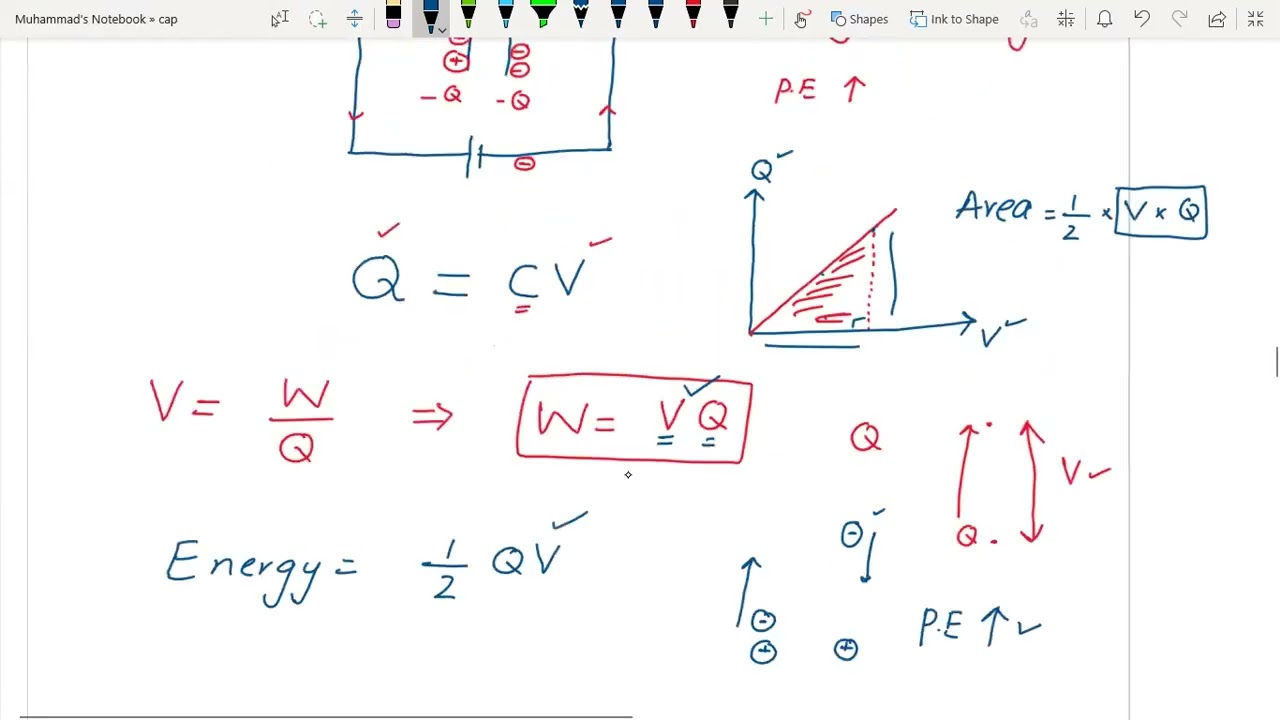 Muhammad's Notebook » cap
Shapes
Ink to Shape
⊖
⊕ ⊖
⊖
-Q -Q
⊖
P.E ↑
Q
Area = 1/2 × V × Q
V
Q = CV
V = W/Q ⇒ W = VQ
Q
V
Q
Energy = 1/2 QV
⊖
⊖
⊕ ⊕
P.E ↑